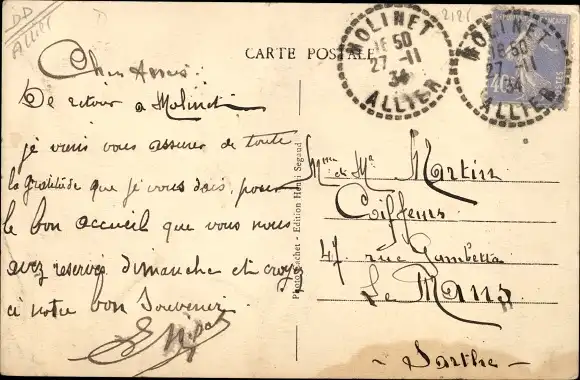 DD
Allier
2126
CARTE POSTALE
MOLINET
18 50
27-11
34
ALLIER
MOLINET
18 50
27-11
34
ALLIER
Chers Amis.
De retour a Molinet
je viens vous assurer de toute
la gratitude que je vous dois, pour
le bon accueil que vous nous
avez reservés dimanche et croyez
à notre bon Souvenir
Photo-Cachet - Edition Henri Segaud
Mme et Mr Martin
Coiffeurs
47 rue Gambetta
Le Mans
- Sarthe -